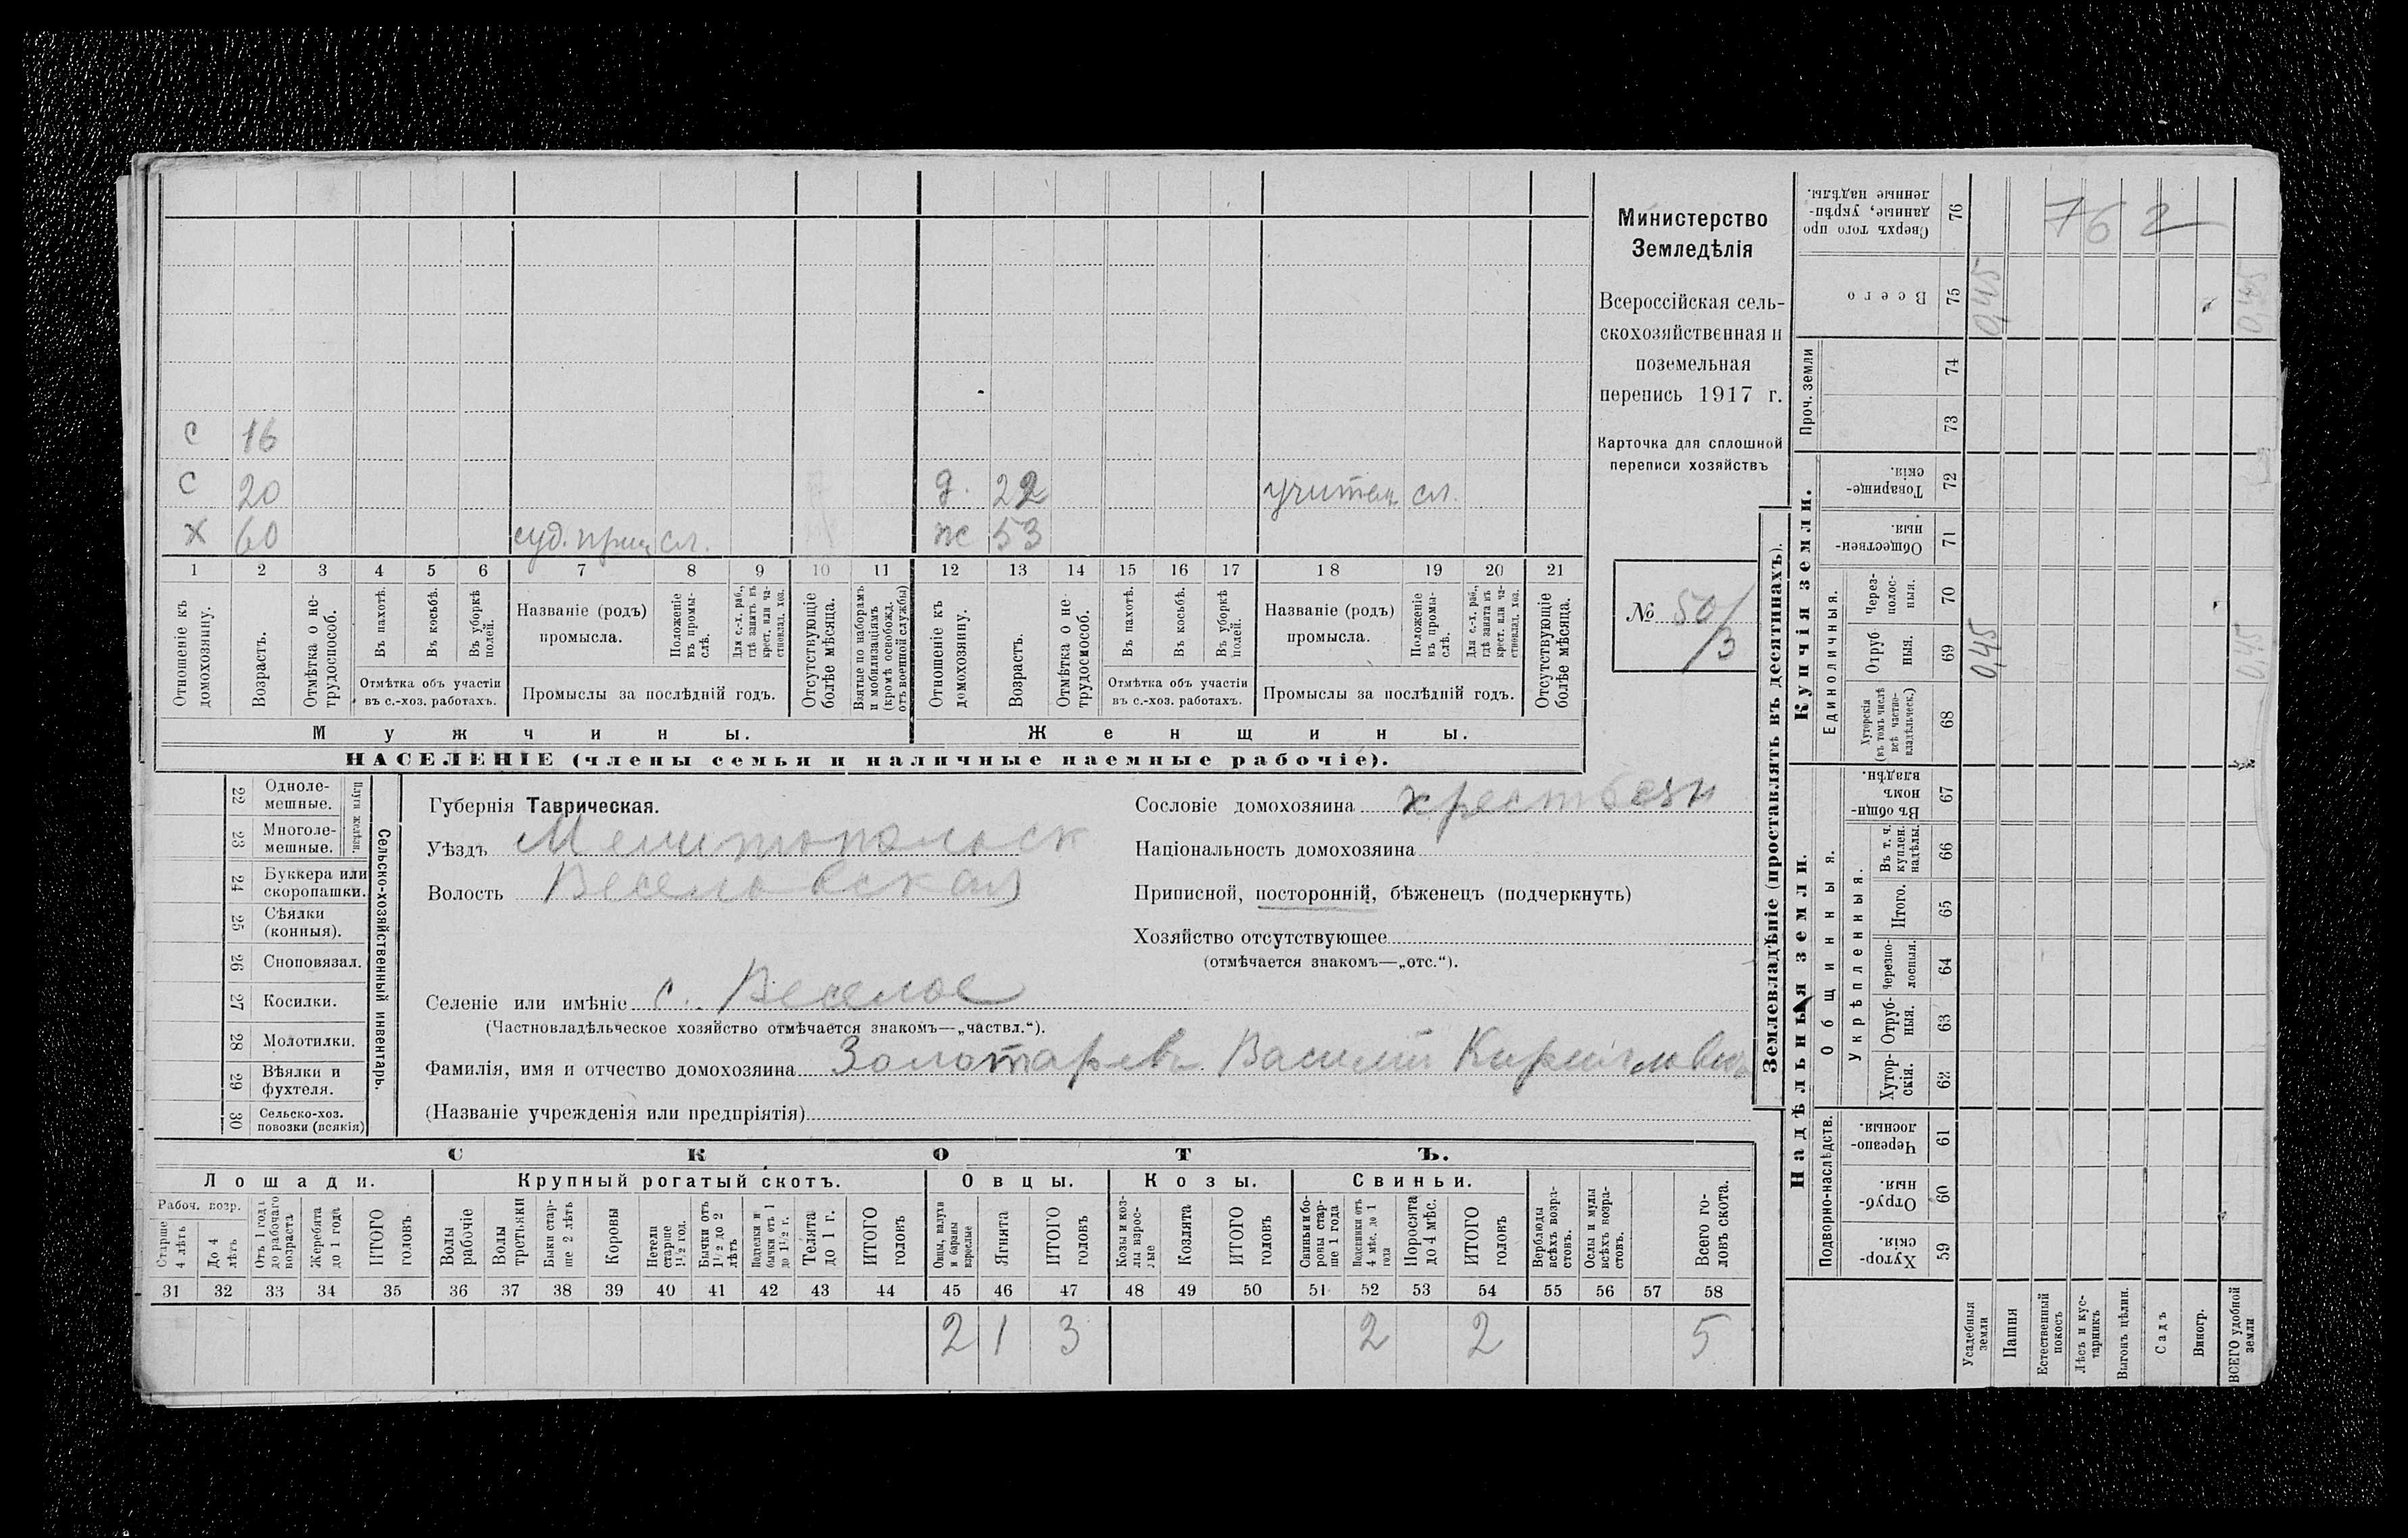 С 16
С 20 д. 22 учител. сл.
Х 60 суд. прис. сл. ж 53
1 2 3 4 5 6 7 8 9 10 11 12 13 14 15 16 17 18 19 20 21
Отношеніе къ домохозяину.
Возрастъ.
Отмѣтка о нетрудоспособ.
Въ пахотѣ.
Въ косьбѣ.
Въ уборкѣ полей.
Отмѣтка объ участіи
въ с.-хоз. работахъ.
Названіе (родъ)
промысла.
Положеніе въ промыслѣ.
Для с.-х. раб., гдѣ занятъ въ крест. или частновлад. хоз.
Промыслы за послѣдній годъ.
Отсутствующіе болѣе мѣсяца.
Взятые по наборамъ и мобилизаціямъ (кромѣ освобожд. отъ военной службы)
Отношеніе къ домохозяину.
Возрастъ.
Отмѣтка о нетрудоспособ.
Въ пахотѣ.
Въ косьбѣ.
Въ уборкѣ полей.
Отмѣтка объ участіи
въ с.-хоз. работахъ.
Названіе (родъ)
промысла.
Положеніе въ промыслѣ.
Для с.-х. раб., гдѣ занята въ крест. или частновлад. хоз.
Промыслы за послѣдній годъ.
Отсутствующіе болѣе мѣсяца.
Мужчины. Женщины.
НАСЕЛЕНІЕ (члены семьи и наличные наемные рабочіе).
Министерство
Земледѣлія
Всероссійская сель-
скохозяйственная и
поземельная
перепись 1917 г.
Карточка для сплошной
переписи хозяйствъ
№ 50/3
22 Одноле-
мешные.
23 Многоле-
мешные.
Плуги желѣзн.
24 Буккера или
скоропашки.
25 Сѣялки
(конныя).
26 Сноповязал.
27 Косилки.
28 Молотилки.
29 Вѣялки и
фухтеля.
30 Сельско-хоз.
повозки (всякія)
Сельско-хозяйственный инвентарь.
Губернія Таврическая.
Уѣздъ Мелитопольск
Волость Веселовская
Сословіе домохозяина крестьян
Національность домохозяина
Приписной, посторонній, бѣженецъ (подчеркнуть)
Хозяйство отсутствующее
(отмѣчается знакомъ—„отс.“).
Селеніе или имѣніе с. Веселое
(Частновладѣльческое хозяйство отмѣчается знакомъ—„частвл.“).
Фамилія, имя и отчество домохозяина Золотаревъ Василій Кирилловъ
(Названіе учрежденія или предпріятія)
СКОТЪ.
Лошади. Крупный рогатый скотъ. Овцы. Козы. Свиньи.
Рабоч. возр.
Старше 4 лѣтъ
До 4 лѣтъ
Отъ 1 года до рабочаго возраста
Жеребята до 1 года
ИТОГО головъ
Волы рабочіе
Волы третьяки
Быки старше 2 лѣтъ
Коровы
Нетели старше 1½ год.
Бычки отъ 1½ до 2 лѣтъ
Подтелки и бычки отъ 1 до 1½ г.
Телята до 1 г.
ИТОГО головъ
Овцы, валухи и бараны взрослые
Ягнята
ИТОГО головъ
Козы и козлы взрослые
Козлята
ИТОГО головъ
Свиньи и боровы старше 1 года
Подсвинки отъ 4 мѣс. до 1 года
Поросята до 4 мѣс.
ИТОГО головъ
Верблюды всѣхъ возрастовъ.
Ослы и мулы всѣхъ возрастовъ.
Всего головъ скота.
31 32 33 34 35 36 37 38 39 40 41 42 43 44 45 46 47 48 49 50 51 52 53 54 55 56 57 58
2 1 3 2 2 5
Землевладѣніе (проставлять въ десятинахъ).
Надѣльныя земли. Купчія земли. Проч. земли
Подворно-наслѣдств. Общинныя. Единоличныя.
Укрѣпленныя.
Хутор-
скія. 59
Отруб-
ныя. 60
Черезпо-
лосныя. 61
Хутор-
скія. 62
Отруб-
ныя. 63
Черезпо-
лосныя. 64
Итого. 65
Въ т. ч. куплен. надѣлы. 66
Въ общи-
номъ владѣн. 67
Хуторскія (въ томъ числѣ всѣ частно-владѣльческ.) 68
Отруб
ныя. 69
Через-
полос-
ныя. 70
Обществен-
ныя. 71
Товарище-
скія. 72
73
74
Всего 75
Сверхъ того про
данные, укрѣп-
ленные надѣлы. 76
Усадебныя земли 0,45 0,45
Пашня
Естественный покосъ
Лѣсъ и кустарникъ
Выгонъ цѣлин.
Садъ
Виногр.
ВСЕГО удобной земли 0,45 0,45
762